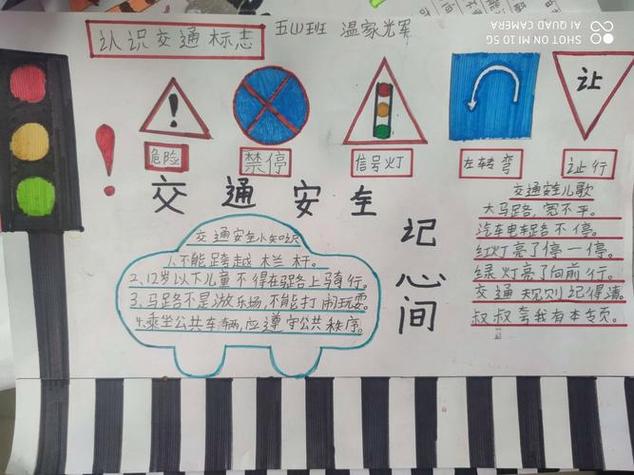 认识交通标志
五山班 温家光军
SHOT ON MI 10 5G
AI QUAD CAMERA
让
危险
禁停
信号灯
左转弯
让行
交通安全
记心间
交通安全小知识
1.不能跨越木兰杆。
2、12岁以下儿童不得在马路上骑行。
3、马路不是游乐场,不能打闹玩耍。
4.乘坐公共车辆,应遵守公共秩序。
交通安全儿歌
大马路,宽不平。
汽车电车路不停。
红灯亮了停一停。
绿灯亮了向前行。
交通规则记得清。
叔叔夸我有本领。